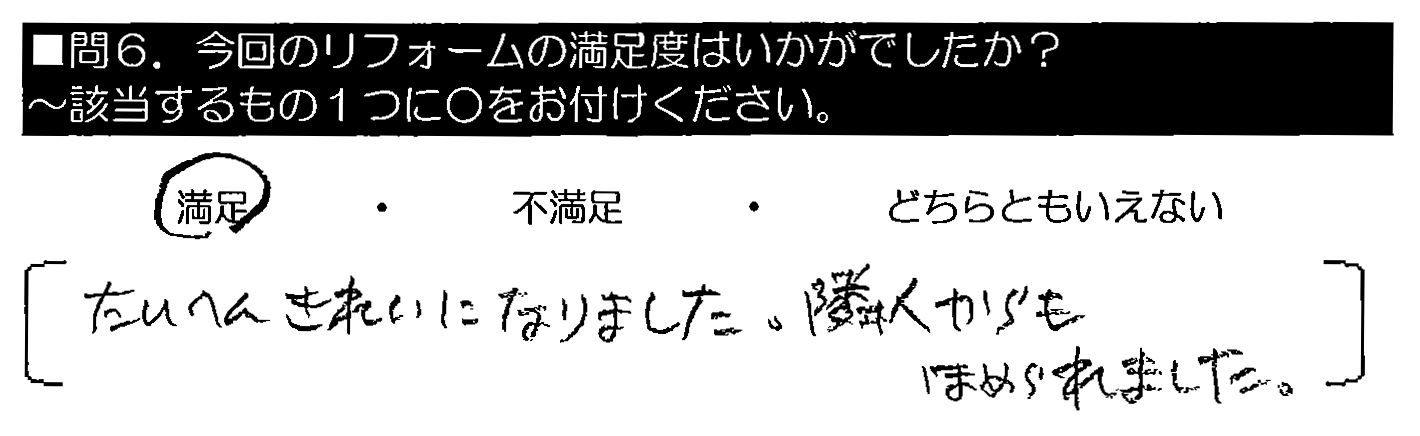 ■問6．今回のリフォームの満足度はいかがでしたか？
～該当するもの1つに〇をお付けください。
満足 ・ 不満足 ・ どちらともいえない
たいへんきれいになりました。隣人からも
ほめられました。